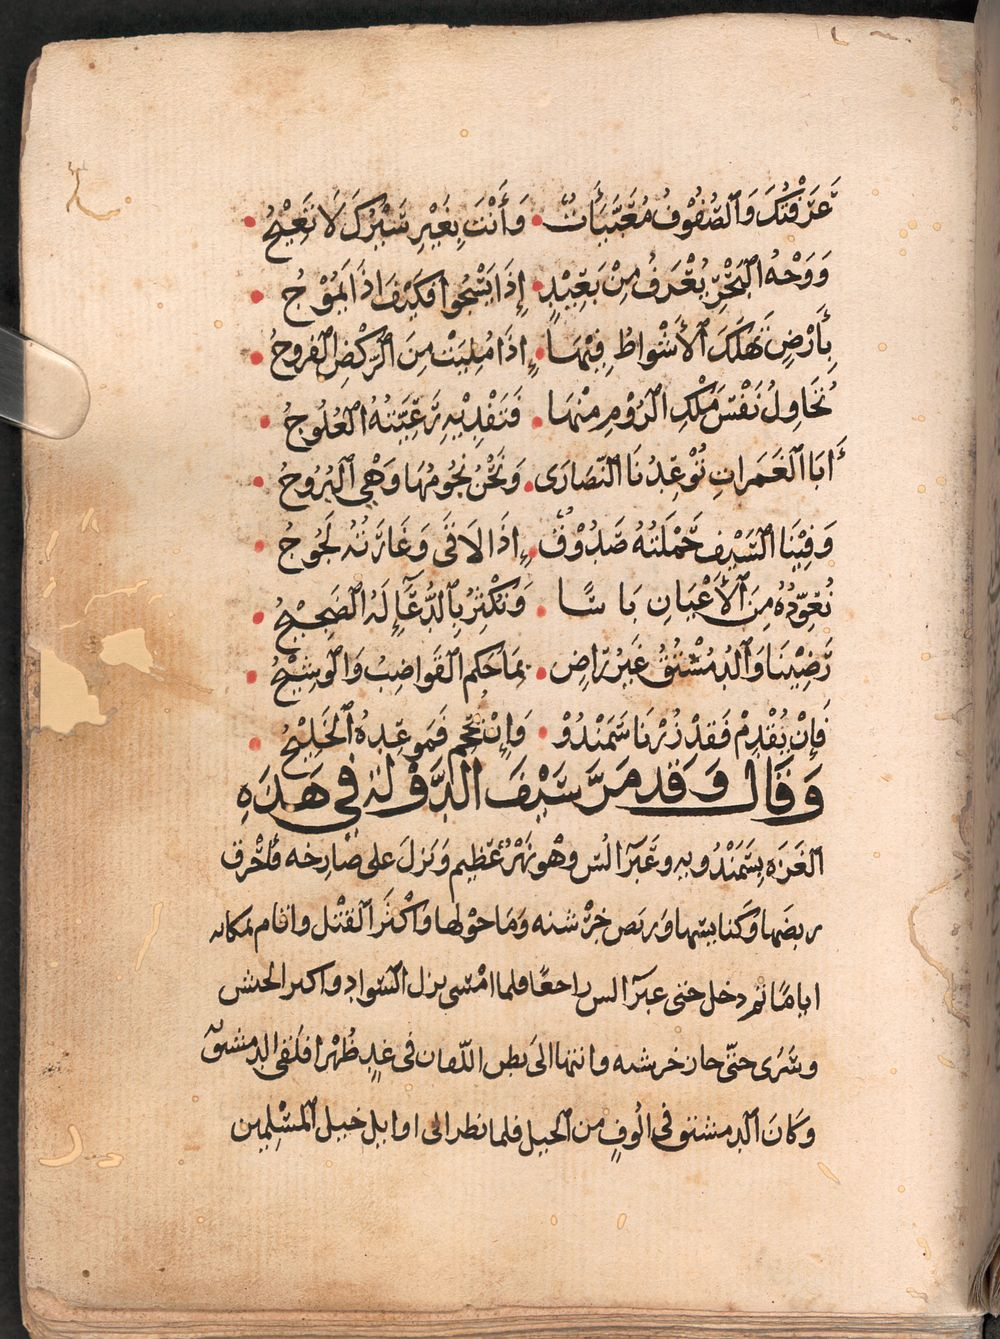 عَرَفْتُكَ وَالصُّفُوْفُ مُعَبَّيَأَتٌ • وَأَنْتَ بِغَيْرِ سَيْرِكَ لَا تَعِيْجُ •
وَوَجْهُ الْبَحْرِ يُعْرَفُ مِنْ بَعِيْدٍ • إِذَا يَسْجُوا فَكَيْفَ اذَا يَمُوْجُ •
بِأَرْضٍ تَهْلَكُ الْأَشْوَاطُ فِيْهَا • إِذَا مُلِيَتْ مِنَ الرَّكْضِ الْفُرُوجُ •
نُحَاوِلُ نَفْسَ مَلْكِ الرُّوْمِ مِنْهَا • فَتَفْدِيْهِ رَعِيَّتُهُ الْعُلُوجُ •
أَبَا الْغَمَراتِ تُوْعِدُنَا النَّصَارَى • وَنَحْنُ نُجُومُهَا وَهْيَ الْبُرُوجُ •
وَفِيْنَا السَّيْفُ حَمْلَتُهُ صَدُوْقٌ • إِذَا لَاقَى وَغَارَتُهُ لَجُوجُ •
نُعَوِّذُهُ مِنَ الْأَعْيَانِ بَاسًا • وَتَكْثُرُ بِالدُّعَاءِ لَهُ الضَّجِيْجُ •
رَضِيْنَا وَالدُّمُسْتُقُ غَيْرُ رَاضٍ • بِمَا حَكَمَ الْقَوَاضِبُ وَالْوَشِيْجُ •
فَإِنْ يُقْدِمْ فَقَدْ زُرْنَا سَمَنْدُوْ • وَإِنْ يُحْجِمْ فَمَوعِدُهُ الْخَلِيْجُ •
وَقَالَ وَقَد مَرَّ سَيْفُ الدَّوْلَهِ فِي هَذِهِ
الغَزَاهِ بِسَمَنْدُو به وعَبَرَ الس وهو نَهْرٌ عَظِيم وَنزلَ على صَارِخه فأحْرق
ربضَها وكنايسها وربص خرْشنه وَمَا حوْلها واكثَر القَتْل واقام بمكانه
اياما ثم دخل حتى عبر الس راجعًا فلما امْسى نزل السَّوَاد واكثر الجيش
وسَرَى حتّى جاز خرشنه وانتها الى بطن اللقان فى غدٍ ظُهْرا فلقى الدمستق
وكانَ الدمستق فى الُوفٍ من الخيل فلما نظر الى اوايل خيل المسْلِمين